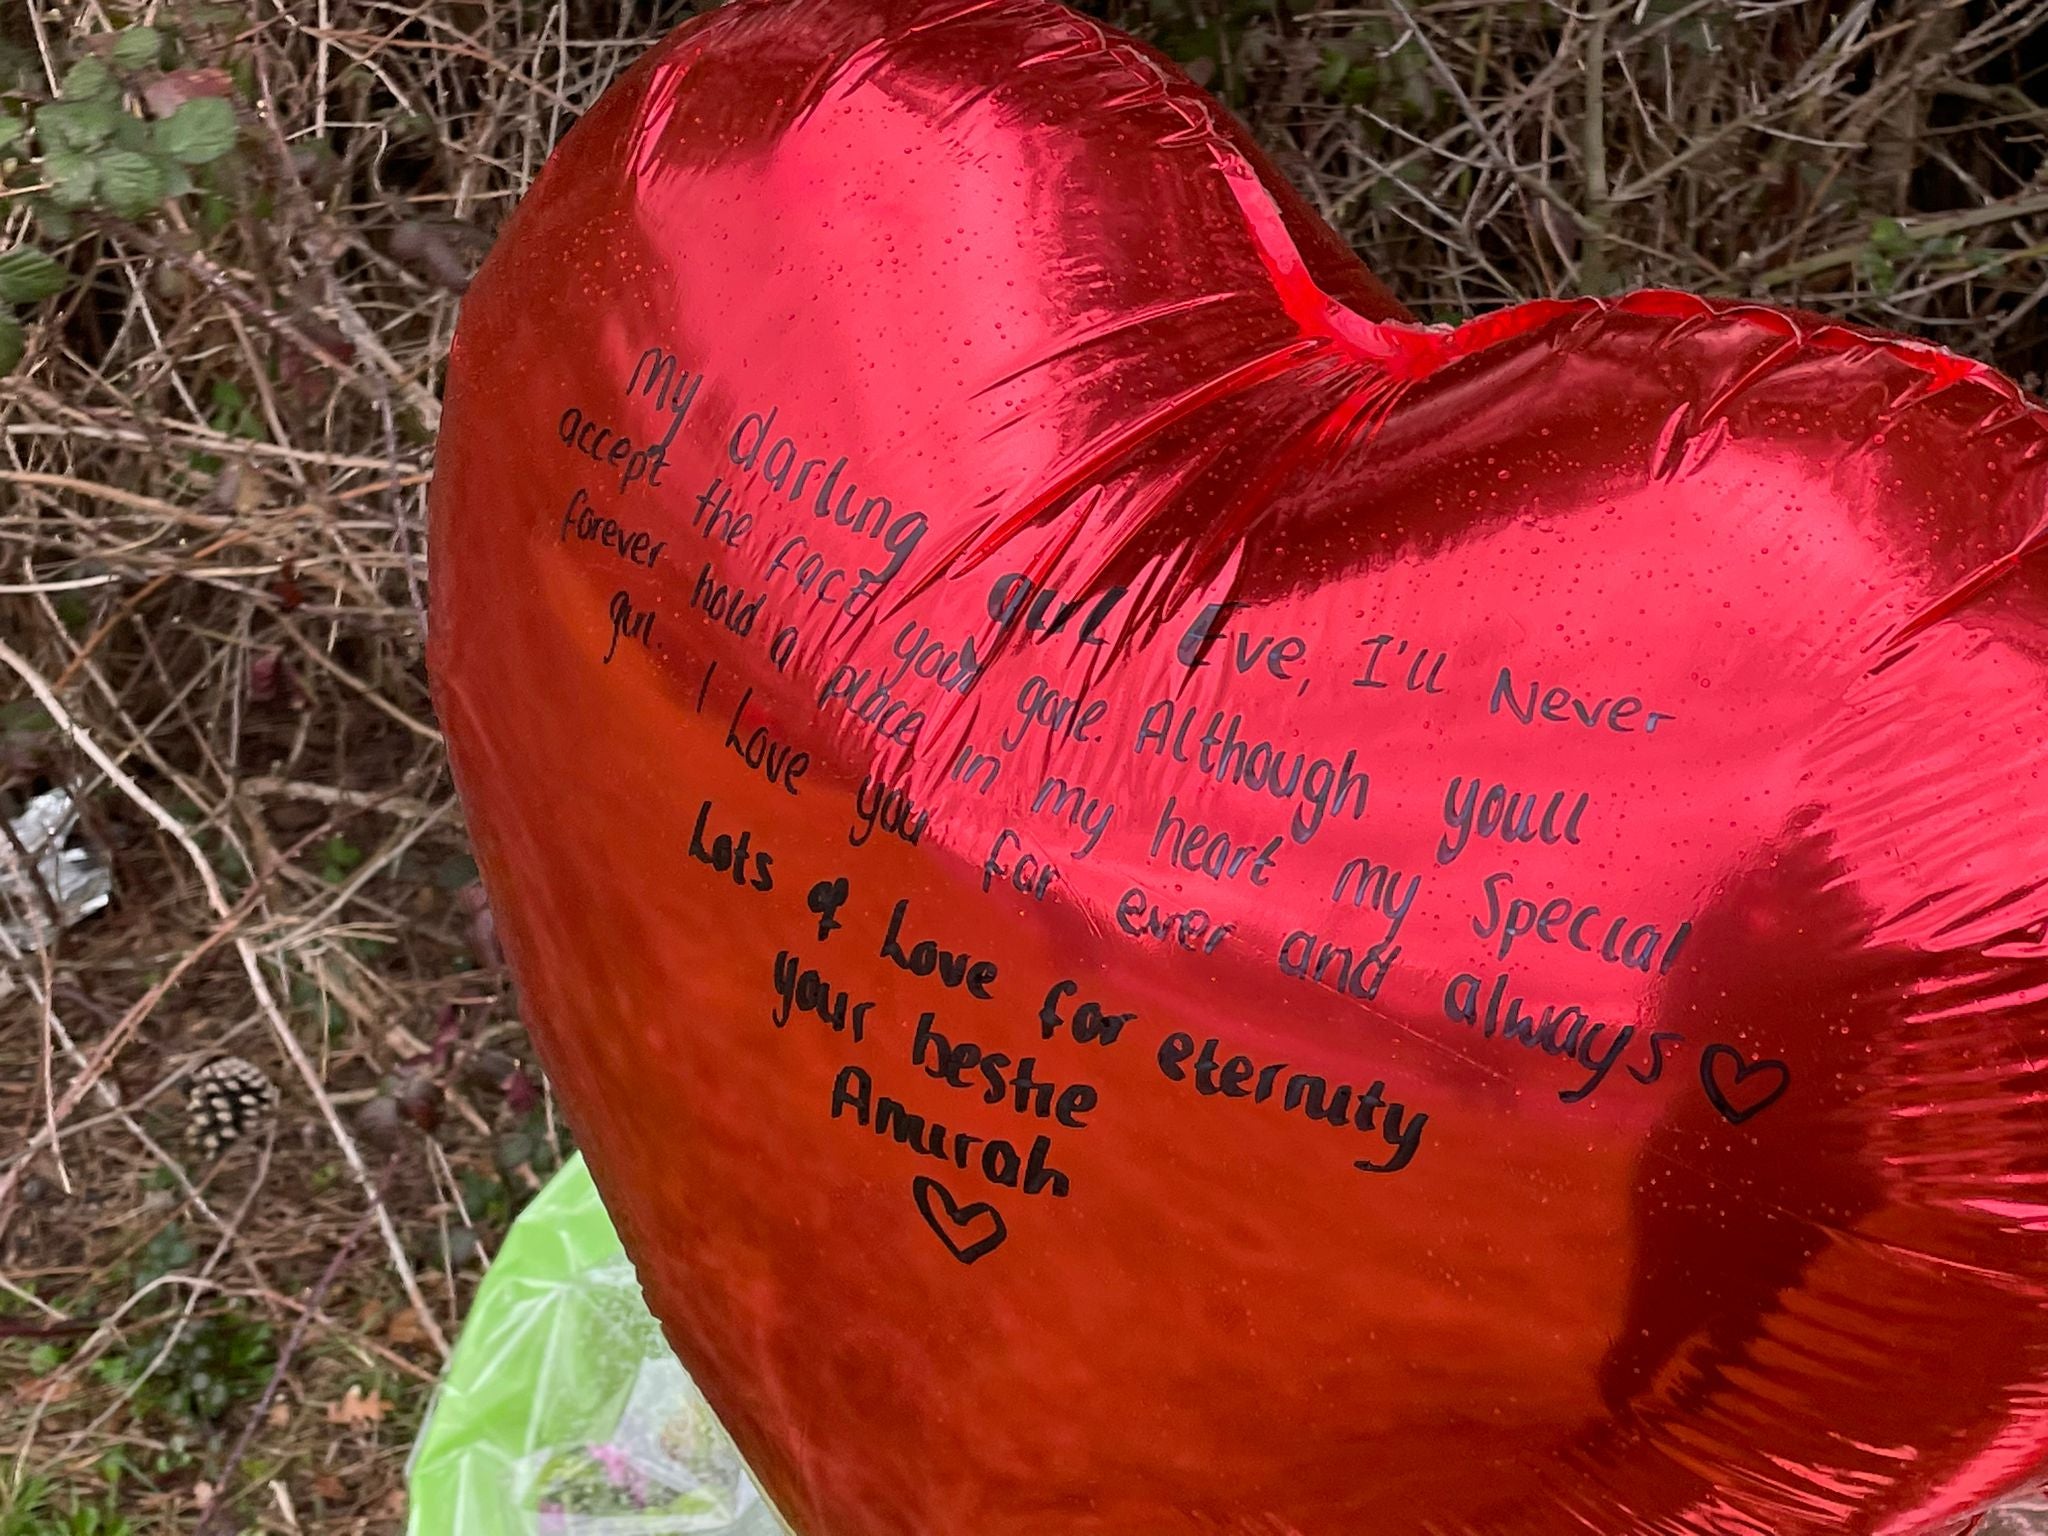 My darling girl Eve, I'll Never
accept the fact your gone. Although youll
forever hold a place in my heart my Special
girl. I Love you for ever and always
Lots of Love for eternity
your bestie
Amirah